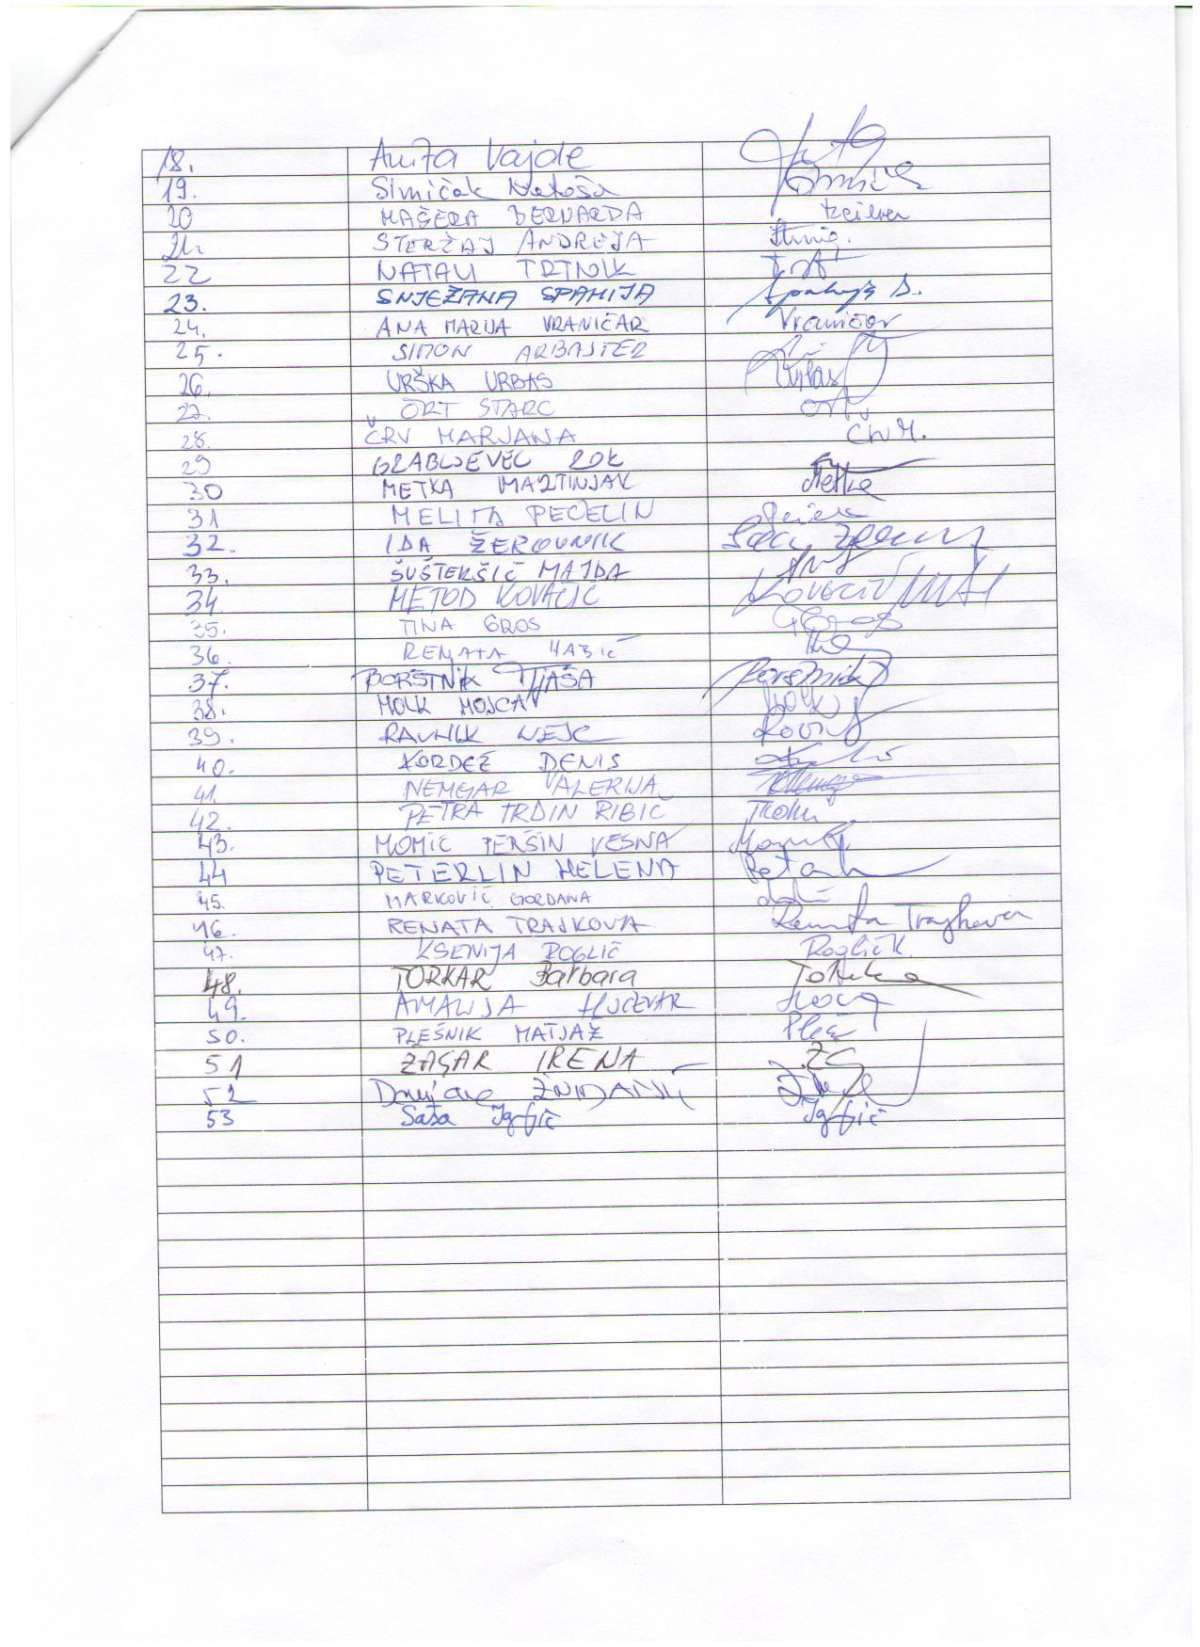 18. Anita Vajde
19. Simičak Nataša
20 MAŠERA BERNARDA
21. STERŽAJ ANDREJA
22 NATALI TRTNIK
23. SNJEŽANA SPAHIJA Spahija S.
24. ANA MARIJA VRANIČAR Vraničar
25. SIMON ARBAJTER
26. URŠKA URBAS Urbas
27. ORT STARC Ort
28. ČRV MARJANA Črv M.
29 GRABLJEVEC ROK
30 METKA MARTINJAK Metka
31 MELITA PEČELIN
32. IDA ŽEROVNIK
33. ŠUŠTERŠIČ MAJDA
34 METOD KOVAČIČ Kovačič
35. TINA GROS Gros
36. RENATA HABIČ
37. BORŠTNIK TJAŠA Borštnik
38. MOLK MOJCA Molk
39. RAVNIK NEJC Ravnik
40. KORDEŽ DENIS
41. NEMGAR VALERIJA
42. PETRA TRDIN RIBIČ
43. MOMIĆ PERŠIN VESNA
44 PETERLIN HELENA
45. MARKOVIČ GORDANA
46. RENATA TRAJKOVA Renata Trajkova
47. KSENIJA ROGLIČ Roglič K.
48. TORKAR Barbara
49. AMALIJA HOČEVAR
50. PLEŠNIK MATJAŽ
51 ŽAGAR IRENA
52 ŽNIDARŠIČ
53 Saša Igrfič Igrfič